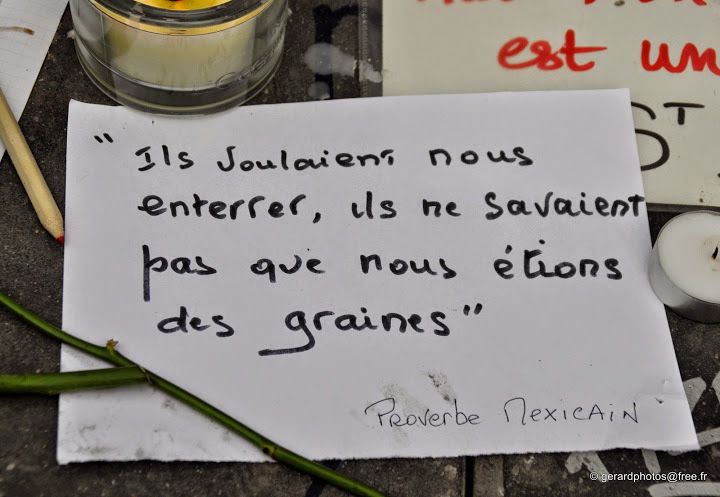 est un
ST
" Ils voulaient nous
enterrer, ils ne savaient
pas que nous étions
des graines "
Proverbe Mexicain
© gerardphotos@free.fr